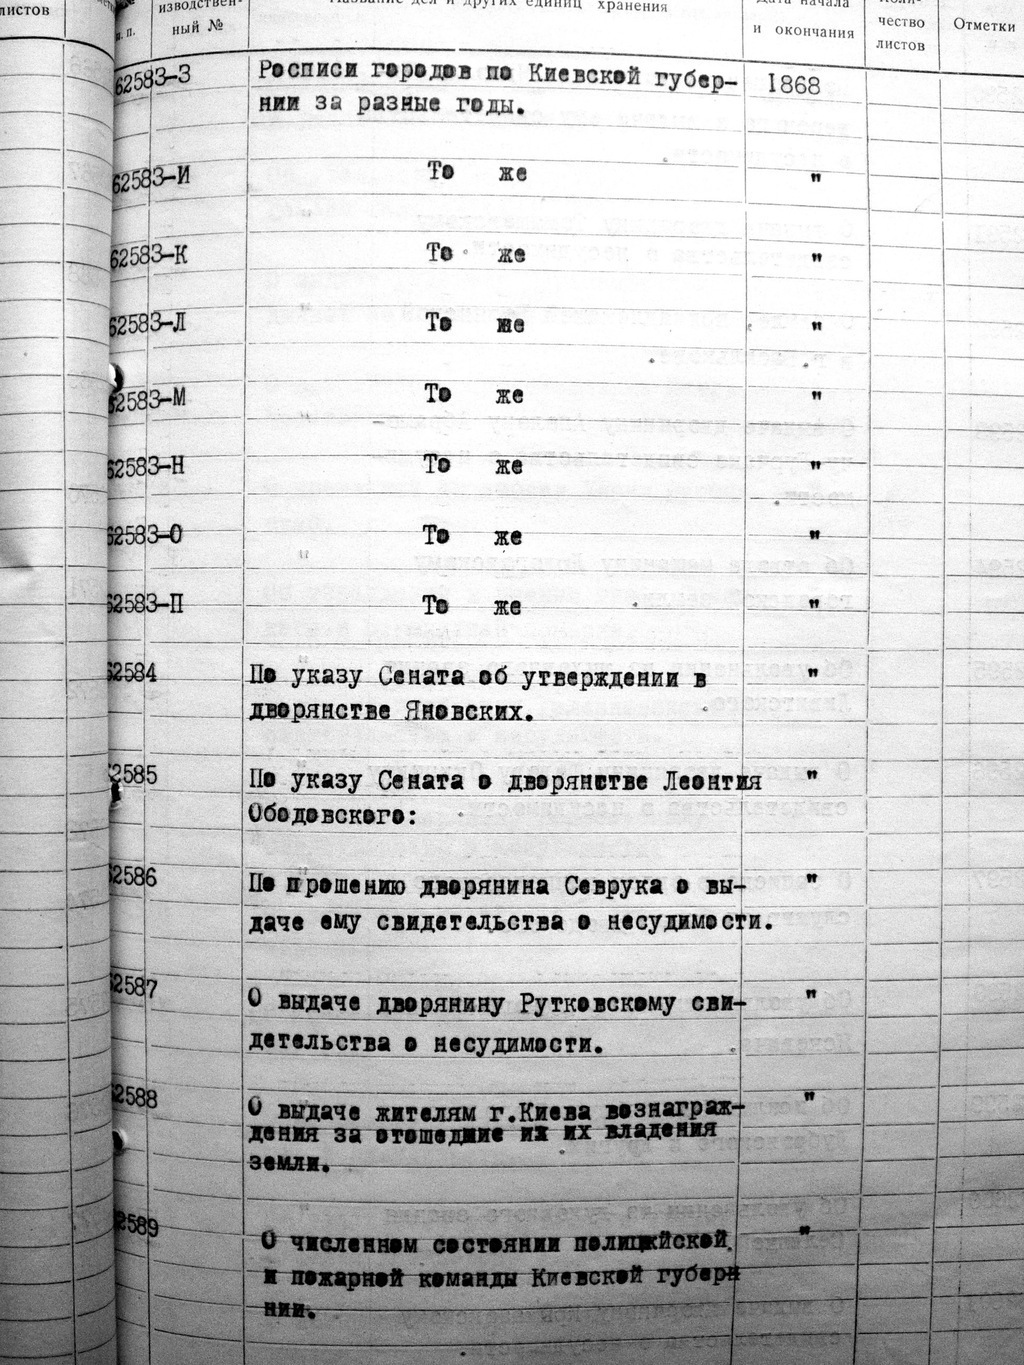 листов
изводствен-
ный №
п. п.
Название дел и других единиц хранения
Дата начала
и окончания
Коли-
чество
листов
Отметки
62583-З Росписи городов по Киевской губер- 1868
нии за разные годы.
62583-И То же "
62583-К То же "
62583-Л То же "
62583-М То же "
62583-Н То же "
62583-О То же "
62583-П То же "
62584 По указу Сената об утверждении в "
дворянстве Яновских.
62585 По указу Сената о дворянстве Леонтия "
Ободовского:
62586 По прошению дворянина Севрука о вы- "
даче ему свидетельства о несудимости.
62587 О выдаче дворянину Рутковскому сви- "
детельства о несудимости.
62588 О выдаче жителям г.Киева вознаграж- "
дения за отошедшие их их владения
земли.
62589 О численном состоянии полицейской "
и пожарной команды Киевской губерн
нии.